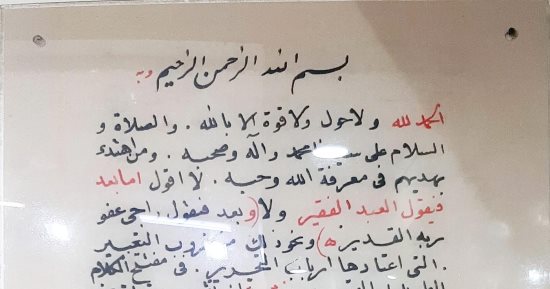 بسم الله الرحمن الرحيم وبه
الحمد لله ولا حول ولا قوة الا بالله . والصلاة و
السلام على سيدنا محمد وآله وصحبه . ومن اهتدى
بهديهم فى معرفة الله وحبه . لا اقول اما بعد
فيقول العبد الفقير ولا (وبعد فيقول راجى عفو
ربه القدير) ونحو ذلك من ضروب التعبير
. التى اعتادها ارباب التحرير . فى مفتتح الكلام